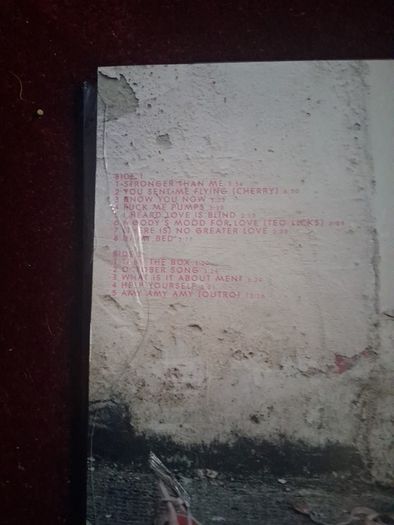 SIDE 1
1 STRONGER THAN ME 3:34
2 YOU SENT ME FLYING (CHERRY) 6:50
3 KNOW YOU NOW
4 FUCK ME PUMPS
5 I HEARD LOVE IS BLIND
6 MOODY'S MOOD FOR LOVE (TEO LICKS)
7 (THERE IS) NO GREATER LOVE
8 IN MY BED 5:17
SIDE 2
1 TAKE THE BOX 3:20
2 OCTOBER SONG 3:24
3 WHAT IS IT ABOUT MEN?
4 HELP YOURSELF
5 AMY AMY AMY (OUTRO) 13:16